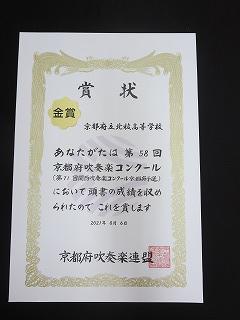 賞状
金賞
京都府立北稜高等学校
あなたがたは 第58回
京都府吹奏楽コンクール
(第71回関西吹奏楽コンクール京都府予選)
において頭書の成績を収め
られたので これを賞します
2021年 8月 6日
京都府吹奏楽連盟